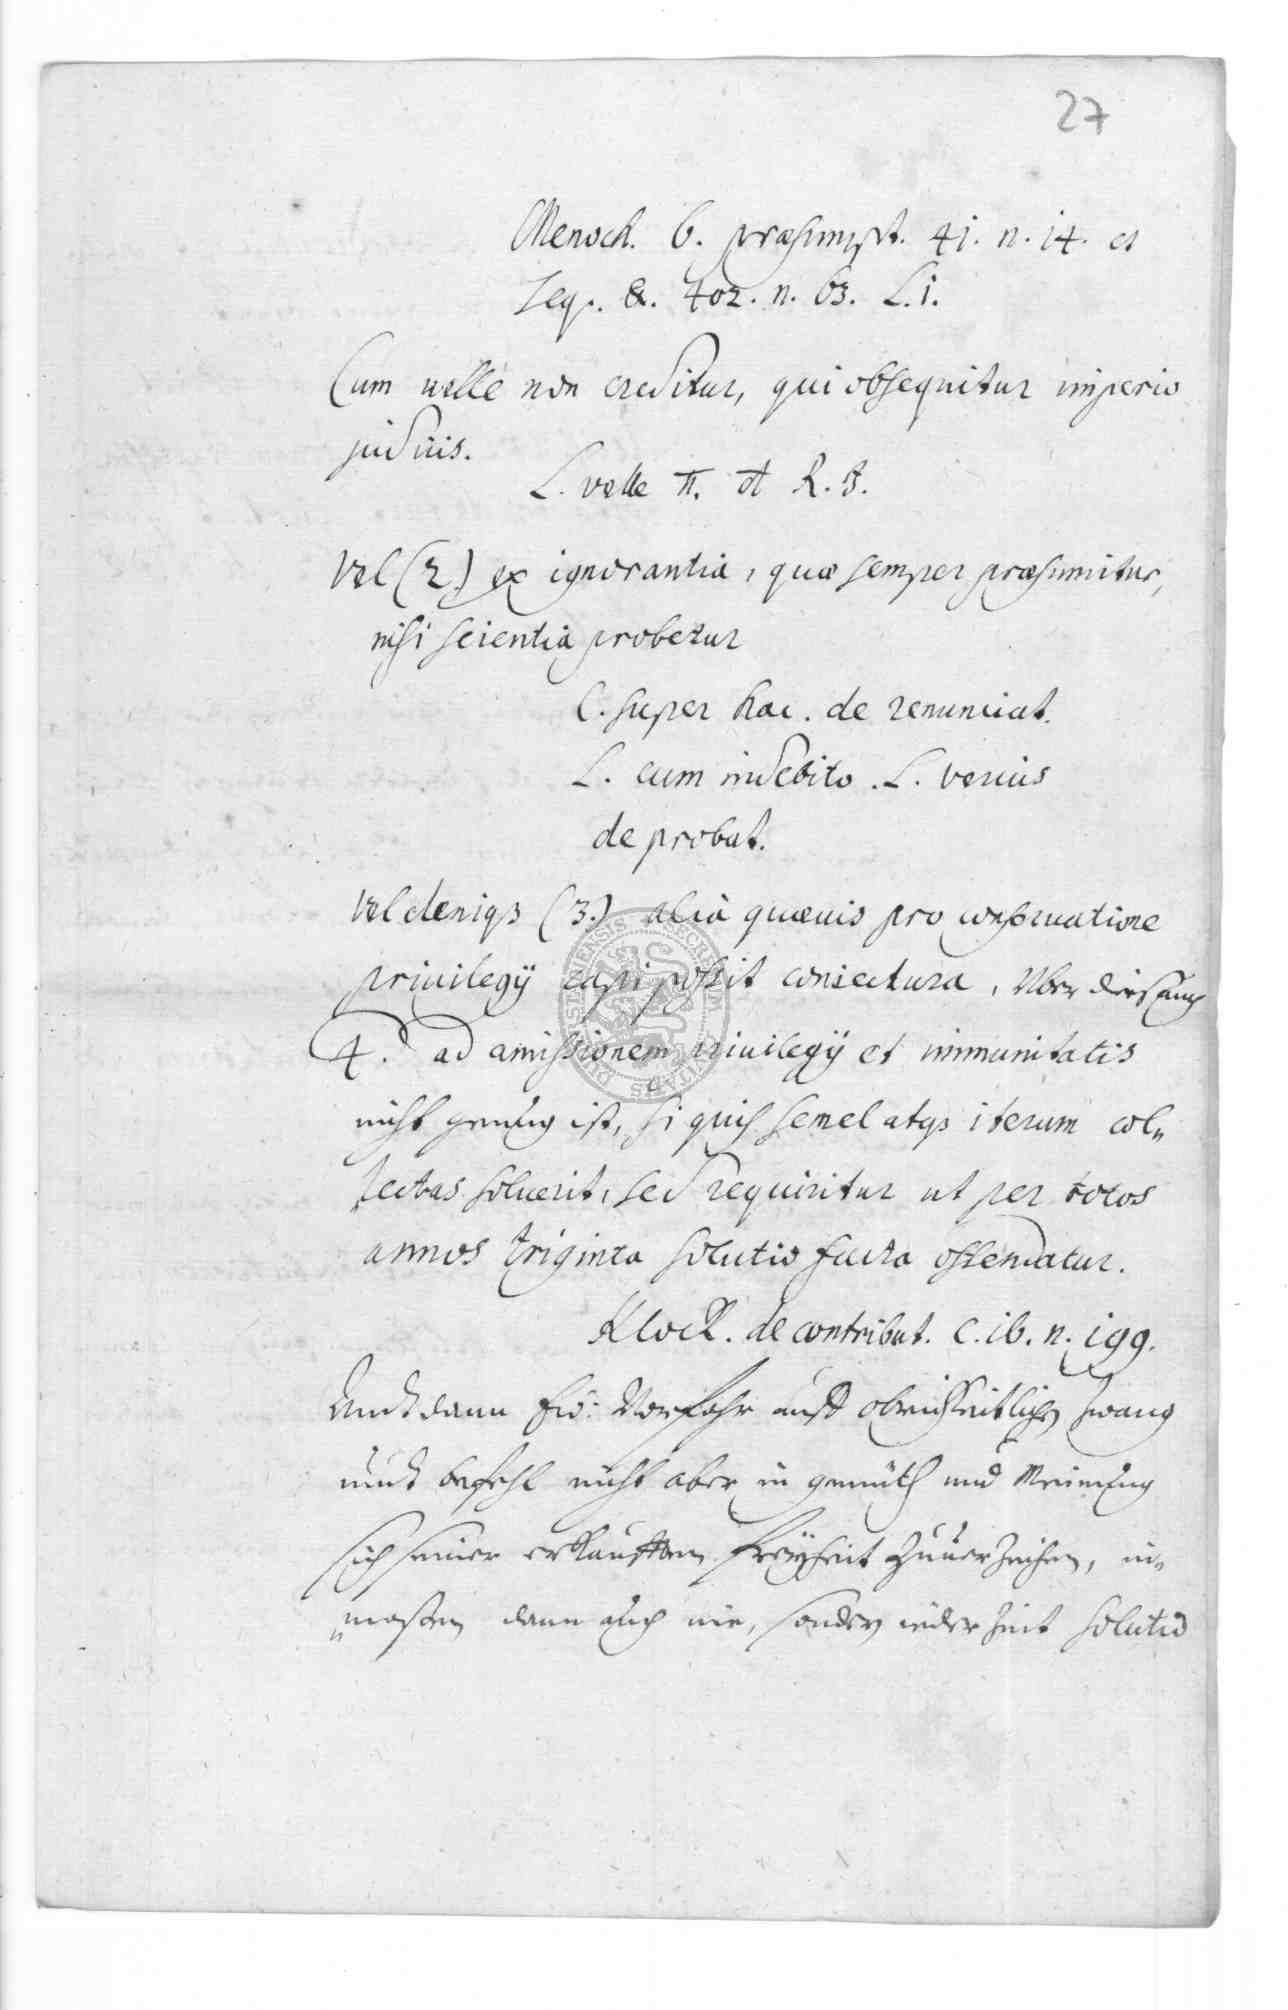 27
Menoch. 6. præsumpt. 41. n. 14. et
seq. &. 402. n. 63. L. 1.
Cum velle non creditur, qui obsequitur imperio
judicis.
L. velle π. d R. J.
Vel (2.) ex ignorantia, quæ semper præsumitur,
nisi scientia probetur
C. super hac. de renunciat.
L. cum indebito. L. verius
de probat.
Vel deniqȝ (3.) alia quævis pro conservatione
privilegÿ capi possit coniectura, Über dieß auch
4. ad amissionem privilegÿ et immunitatis
nicht genug ist, si quis semel atqȝ iterum col„
lectas solverit, sed requiritur ut per totos
annos triginta solutio facta ostendatur.
Klock. de contribut. c. 16. n. 199.
Undt dann Vorfahr auff obrigkeitlichen zwang
undt befehl nicht aber in gemüth und Meinung
sich seiner erkaufften freÿheit zuverzeihen, in„
„maßen dann auch nie, sondern iederzeit solutio
SECRETUM